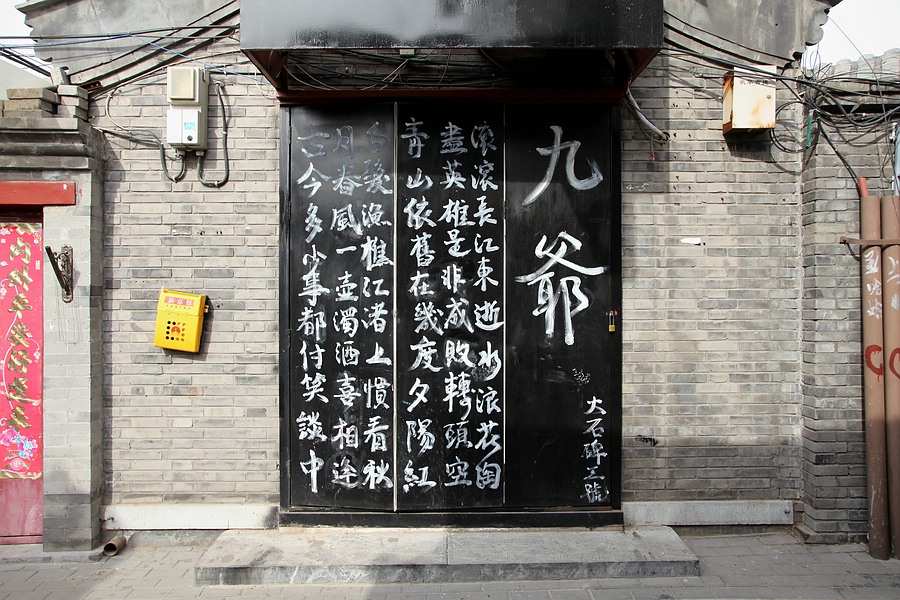 九爺
大石碑三號
滾滾長江東逝水浪花淘
盡英雄是非成敗轉頭空
青山依舊在幾度夕陽紅
白髮漁樵江渚上慣看秋
月春風一壺濁酒喜相逢
古今多少事都付笑談中